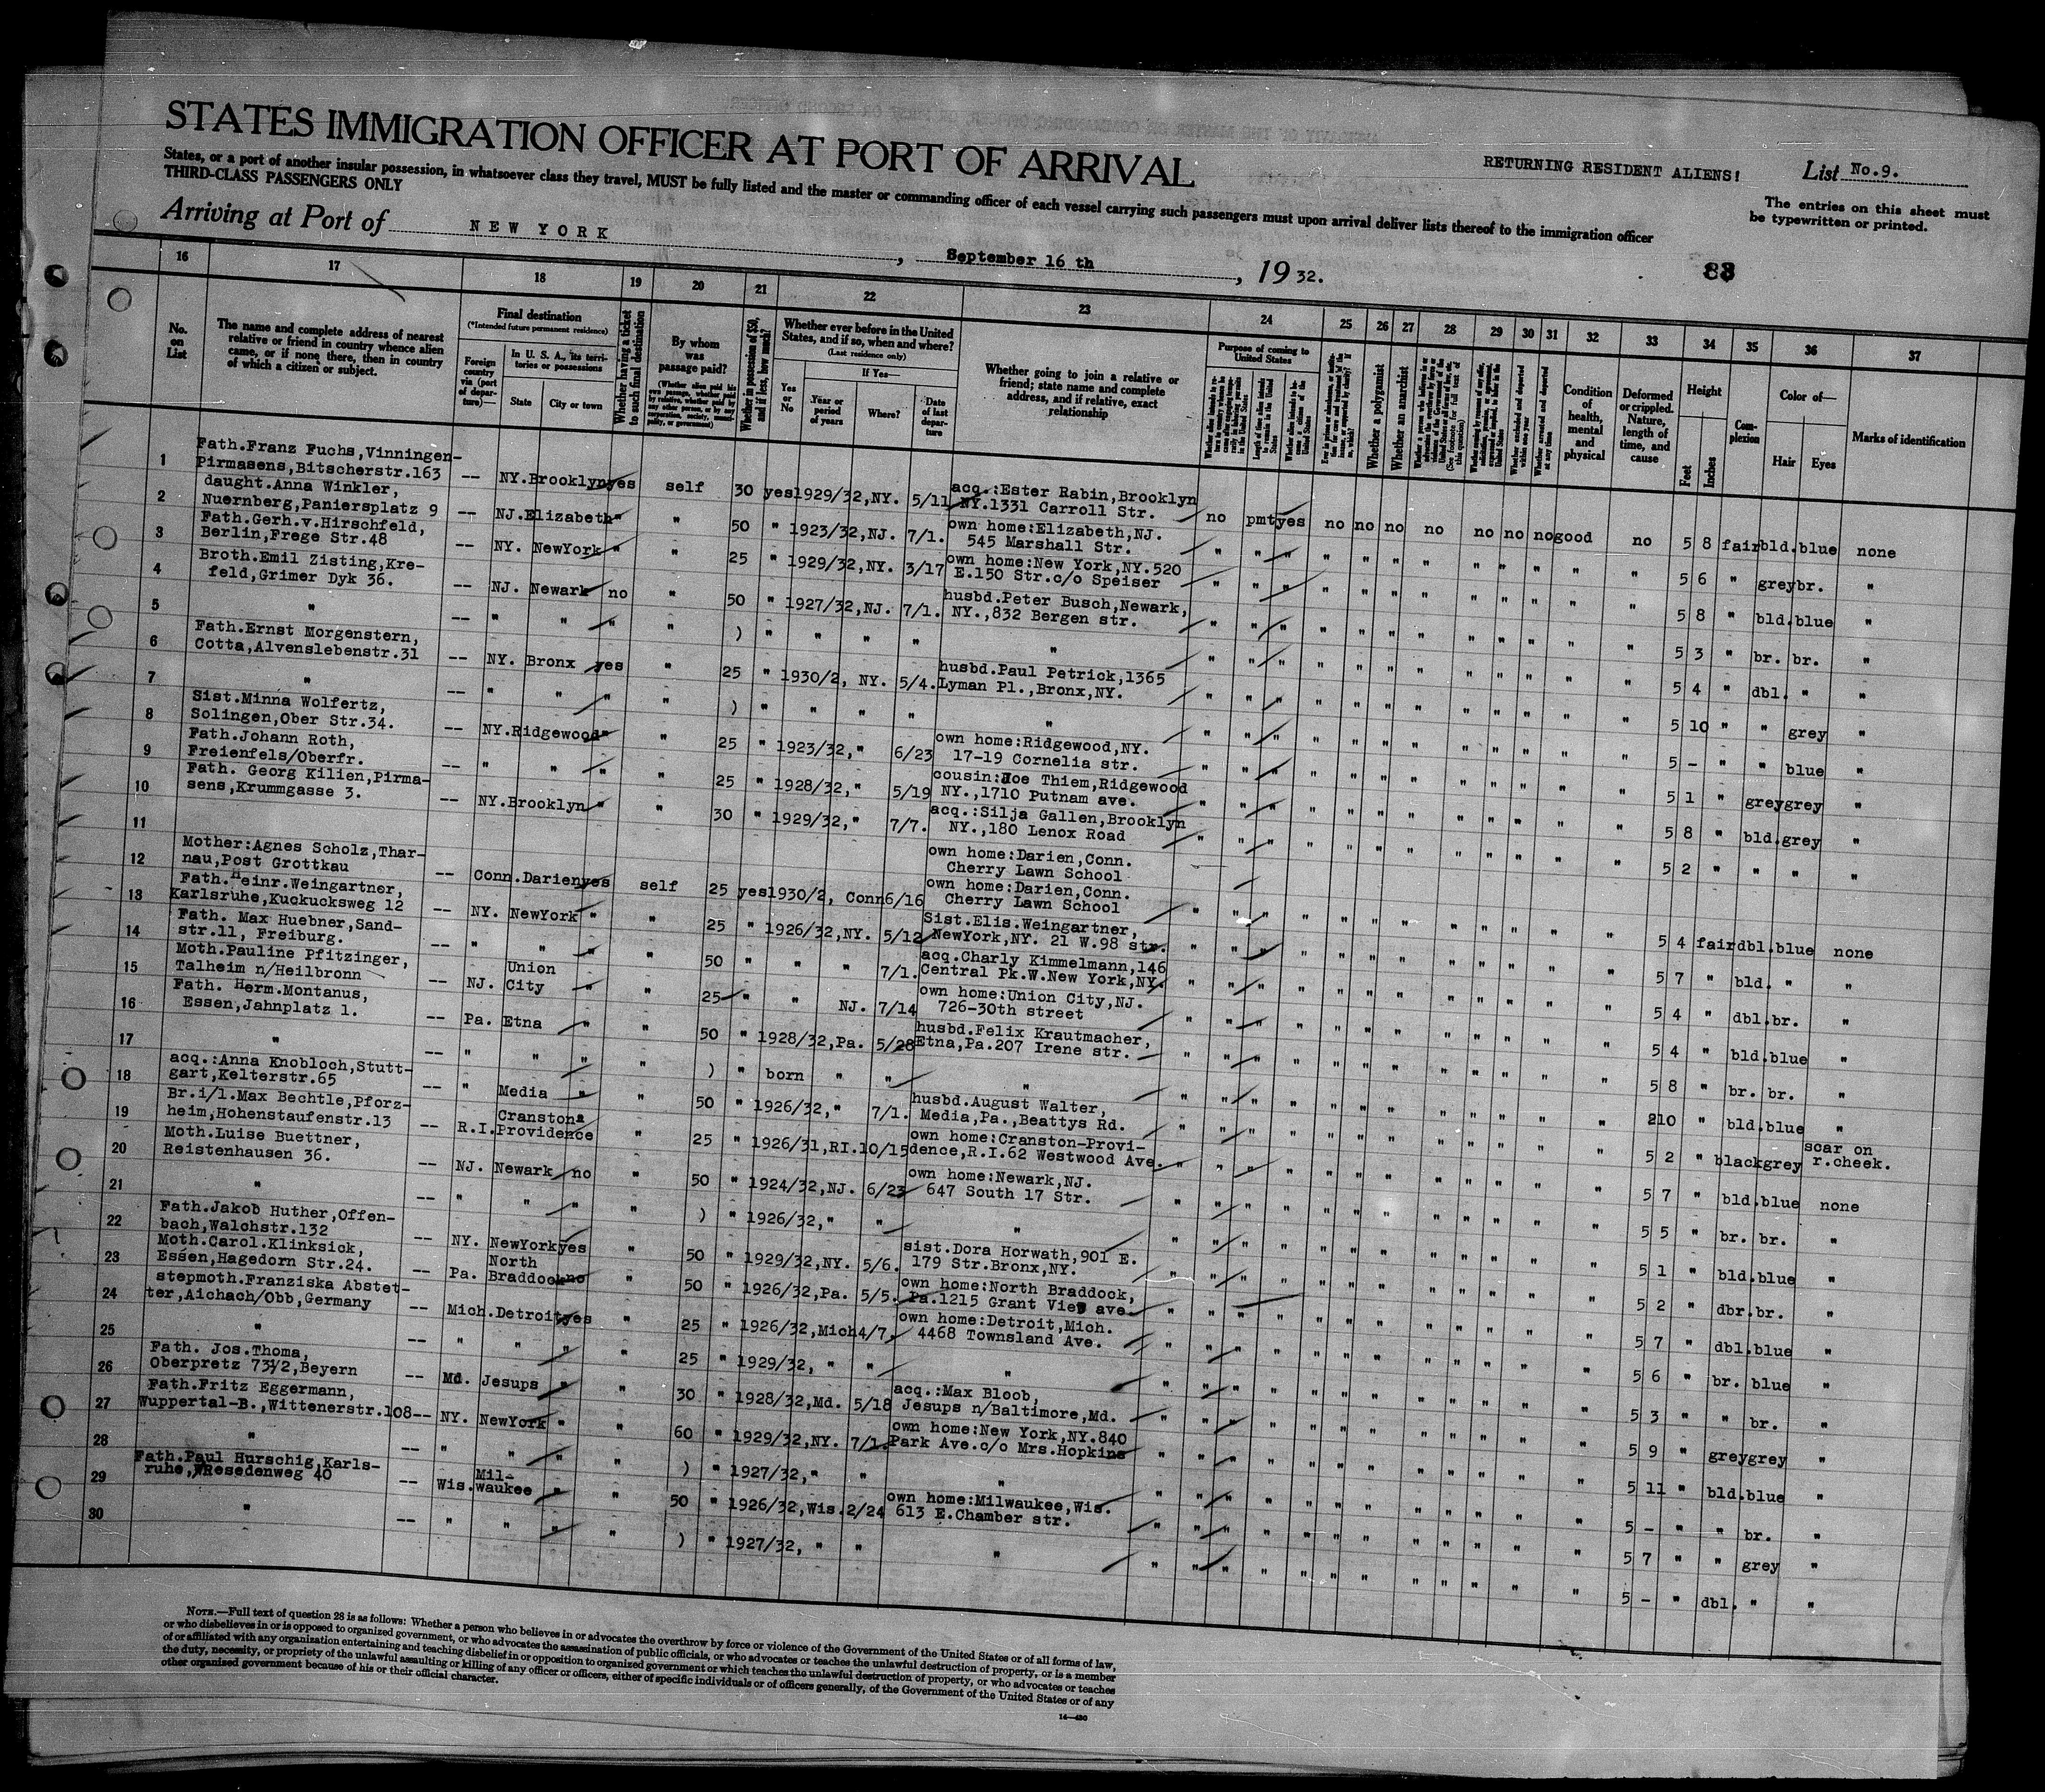 STATES IMMIGRATION OFFICER AT PORT OF ARRIVAL
RETURNING RESIDENT ALIENS!
List No.9.
States, or a port of another insular possession, in whatsoever class they travel, MUST be fully listed and the master or commanding officer of each vessel carrying such passengers must upon arrival deliver lists thereof to the immigration officer
THIRD-CLASS PASSENGERS ONLY
The entries on this sheet must
be typewritten or printed.
Arriving at Port of NEW YORK, September 16 th, 19 32.
16 17 18 19 20 21 22 23 24 25 26 27 28 29 30 31 32 33 34 35 36 37
No. on List
The name and complete address of nearest relative or friend in country whence alien came, or if none there, then in country of which a citizen or subject.
Final destination
(*Intended future permanent residence)
Foreign country via (port of departure)—
In U. S. A., its territories or possessions
State City or town
Whether having a ticket to such final destination
By whom was passage paid?
Whether in possession of $50, and if less, how much?
Whether ever before in the United States, and if so, when and where?
(Last residence only)
Yes or No
If Yes—
Year or period of years
Where?
Date of last departure
Whether going to join a relative or friend; state name and complete address, and if relative, exact relationship
Purpose of coming to United States
Whether a polygamist
Whether an anarchist
Condition of health, mental and physical
Deformed or crippled. Nature, length of time, and cause
Height
Feet Inches
Complexion
Color of—
Hair Eyes
Marks of identification
1 Fath.Franz Fuchs,Vinningen-
Pirmasens,Bitscherstr.163 -- NY.Brooklyn yes self 30 yes 1929/32,NY. 5/11 acq.:Ester Rabin,Brooklyn
NY.1331 Carroll Str. no pmt yes no no no no no no no good no 5 8 fair bld. blue none
2 daught.Anna Winkler,
Nuernberg,Paniersplatz 9 -- NJ.Elizabeth " " 50 " 1923/32,NJ. 7/1. own home:Elizabeth,NJ.
545 Marshall Str. 5 6 " grey br. "
3 Fath.Gerh.v.Hirschfeld,
Berlin,Frege Str.48 -- NY. NewYork " " 25 " 1929/32,NY. 3/17 own home:New York,NY.520
E.150 Str.c/o Speiser 5 8 " bld. blue "
4 Broth.Emil Zisting,Kre-
feld,Grimer Dyk 36. -- NJ. Newark no " 50 " 1927/32,NJ. 7/1. husbd.Peter Busch,Newark,
NY.,832 Bergen str. 5 3 " br. br. "
5 " -- " " " " ) " " " " " 5 4 " dbl. " "
6 Fath.Ernst Morgenstern,
Cotta,Alvenslebenstr.31 -- NY. Bronx yes " 25 " 1930/2, NY. 5/4. husbd.Paul Petrick,1365
Lyman Pl.,Bronx,NY. 5 10 " " grey "
7 " -- " " " " ) " " " " " 5 - " " blue "
8 Sist.Minna Wolfertz,
Solingen,Ober Str.34. -- NY.Ridgewood " " 25 " 1923/32," 6/23 own home:Ridgewood,NY.
17-19 Cornelia str. 5 1 " grey grey "
9 Fath.Johann Roth,
Freienfels/Oberfr. -- " " " " 25 " 1928/32," 5/19 cousin:Joe Thiem,Ridgewood
NY.,1710 Putnam ave. 5 8 " bld. grey "
10 Fath. Georg Kilien,Pirma-
sens,Krummgasse 3. -- NY.Brooklyn " " 30 " 1929/32," 7/7. acq.:Silja Gallen,Brooklyn
NY.,180 Lenox Road 5 2 " " " "
11 own home:Darien,Conn.
Cherry Lawn School
12 Mother:Agnes Scholz,Thar-
nau,Post Grottkau -- Conn.Darien yes self 25 yes 1930/2, Conn 6/16 own home:Darien,Conn.
Cherry Lawn School 5 4 fair dbl. blue none
13 Fath.Heinr.Weingartner,
Karlsruhe,Kuckucksweg 12 -- NY. NewYork " " 25 " 1926/32,NY. 5/12 Sist.Elis.Weingartner,
NewYork,NY. 21 W.98 str. 5 7 " bld. " "
14 Fath. Max Huebner,Sand-
str.11, Freiburg. -- " " " " 50 " " " 7/1. acq.Charly Kimmelmann,146
Central Pk.W.New York,NY. 5 4 " dbl. br. "
15 Moth.Pauline Pfitzinger,
Talheim n/Heilbronn -- NJ. Union City " " 25 " " NJ. 7/14 own home:Union City,NJ.
726-30th street 5 4 " bld. blue "
16 Fath. Herm.Montanus,
Essen,Jahnplatz 1. -- Pa. Etna " " 50 " 1928/32,Pa. 5/28 husbd.Felix Krautmacher,
Etna,Pa.207 Irene str. 5 8 " br. br. "
17 " -- " " " " ) " born " " " 2 10 " bld. blue "
18 acq.:Anna Knobloch,Stutt-
gart,Kelterstr.65 -- " Media " " 50 " 1926/32," 7/1. husbd.August Walter,
Media,Pa.,Beattys Rd. 5 2 " black grey scar on
r.cheek.
19 Br.i/l.Max Bechtle,Pforz-
heim,Hohenstaufenstr.13 -- R.I. Cranston
Providence " 25 " 1926/31,RI. 10/15 own home:Cranston-Provi-
dence,R.I.62 Westwood Ave. 5 7 " bld. blue none
20 Moth.Luise Buettner,
Reistenhausen 36. -- NJ. Newark no " 50 " 1924/32,NJ. 6/23 own home:Newark,NJ.
647 South 17 Str. 5 5 " br. br. "
21 " -- " " " " ) " 1926/32," " " 5 1 " bld. blue "
22 Fath.Jakob Huther,Offen-
bach,Walchstr.132 -- NY. NewYork yes " 50 " 1929/32,NY. 5/6. sist.Dora Horwath,901 E.
179 Str.Bronx,NY. 5 2 " dbr. br. "
23 Moth.Carol.Klinksick,
Essen,Hagedorn Str.24. -- Pa. North
Braddock no " 50 " 1926/32,Pa. 5/5. own home:North Braddock,
Pa.1215 Grant View ave. 5 7 " dbl. blue "
24 stepmoth.Franziska Abstet-
ter,Aichach/Obb,Germany -- Mich.Detroit yes " 25 " 1926/32,Mich 4/7. own home:Detroit,Mich.
4468 Townsland Ave. 5 6 " br. blue "
25 " -- " " " " 25 " 1929/32, " " " 5 3 " " br. "
26 Fath. Jos.Thoma,
Oberpretz 73½,Beyern -- Md. Jesups " " 30 " 1928/32,Md. 5/18 acq.:Max Bloob,
Jesups n/Baltimore,Md. 5 9 " grey grey "
27 Fath.Fritz Eggermann,
Wuppertal-B.,Wittenerstr.108-- NY. NewYork " " 60 " 1929/32,NY. 7/1. own home:New York,NY.840
Park Ave.c/o Mrs.Hopkins 5 11 " bld. blue "
28 " -- " " " " ) " 1927/32," " " 5 - " " br. "
29 Fath.Paul Hurschig,Karls-
ruhe,Resedenweg 40 -- Wis. Mil-
waukee " " 50 " 1926/32,Wis. 2/24 own home:Milwaukee,Wis.
613 E.Chamber str. 5 7 " " grey "
30 " -- " " " " ) " 1927/32, " " " 5 - " dbl. " "
NOTE.—Full text of question 28 is as follows: Whether a person who believes in or advocates the overthrow by force or violence of the Government of the United States or of all forms of law,
or who disbelieves in or is opposed to organized government, or who advocates the assassination of public officials, or who advocates or teaches the unlawful destruction of property, or is a member
of or affiliated with any organization entertaining and teaching disbelief in or opposition to organized government or which teaches the unlawful destruction of property, or who advocates or teaches
the duty, necessity, or propriety of the unlawful assaulting or killing of any officer or officers, either of specific individuals or of officers generally, of the Government of the United States or of any
other organized government because of his or their official character.
14—430